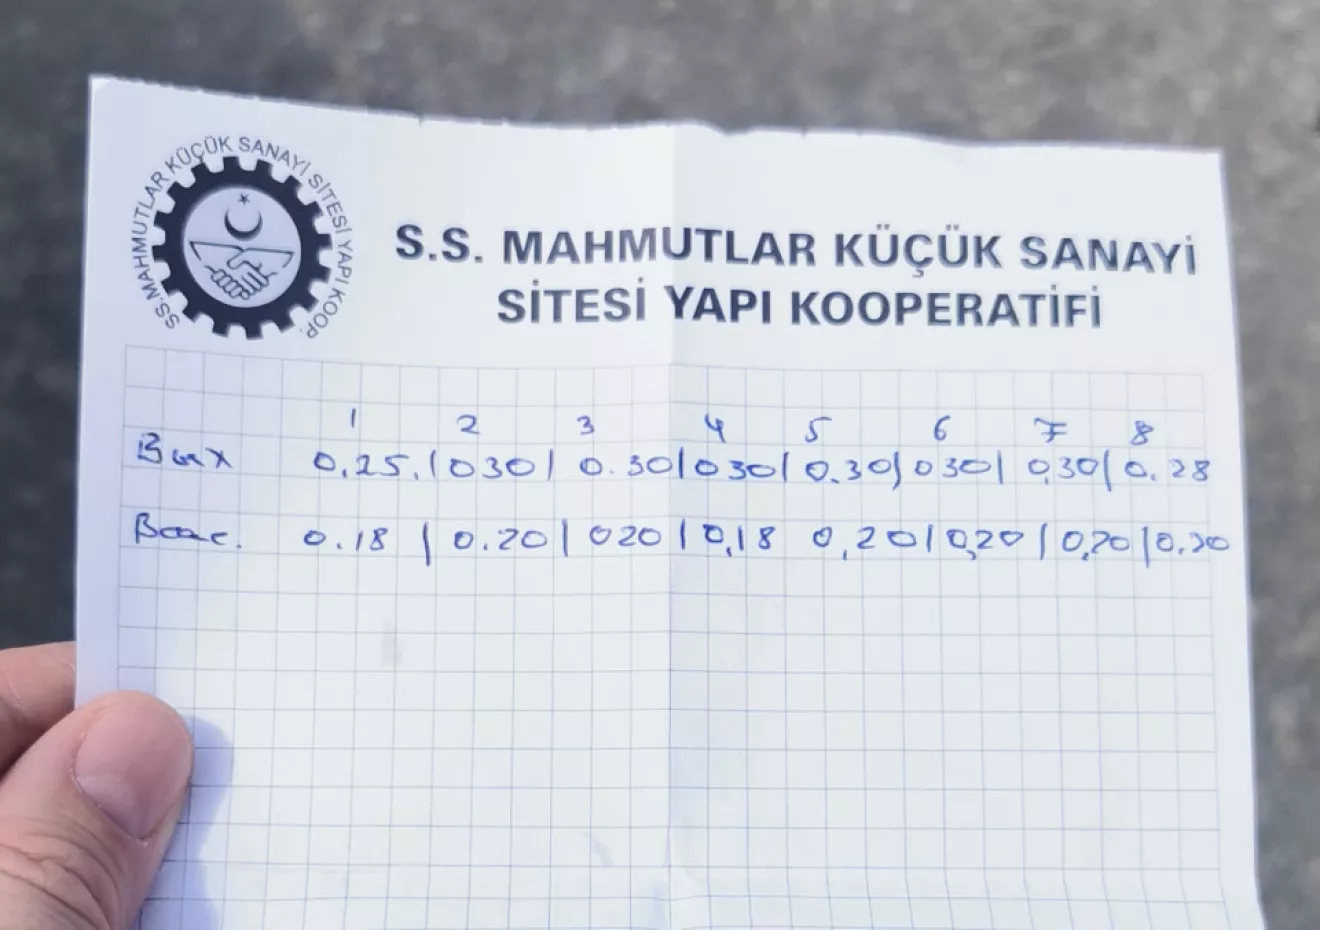 S.S. MAHMUTLAR KÜÇÜK SANAYİ SİTESİ YAPI KOOP.
S.S. MAHMUTLAR KÜÇÜK SANAYİ
SİTESİ YAPI KOOPERATİFİ
1 2 3 4 5 6 7 8
Вых 0.25. | 030 | 0.30 | 030 | 0.30 | 030 | 0,30 | 0.28
Всас. 0.18 | 0.20 | 020 | 0,18 0,20 | 0,20 | 0,20 | 0.20